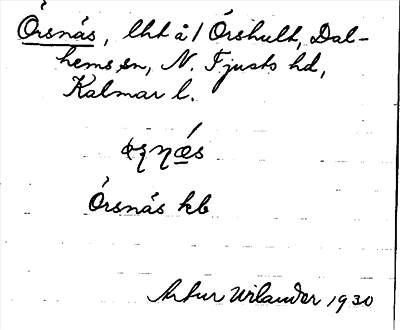 Órsnás, lht å 1 Órshult, Dal-
hems sn, N. Tjusts hd,
Kalmar l.
Órsnás kb
Artur Wilander 1930